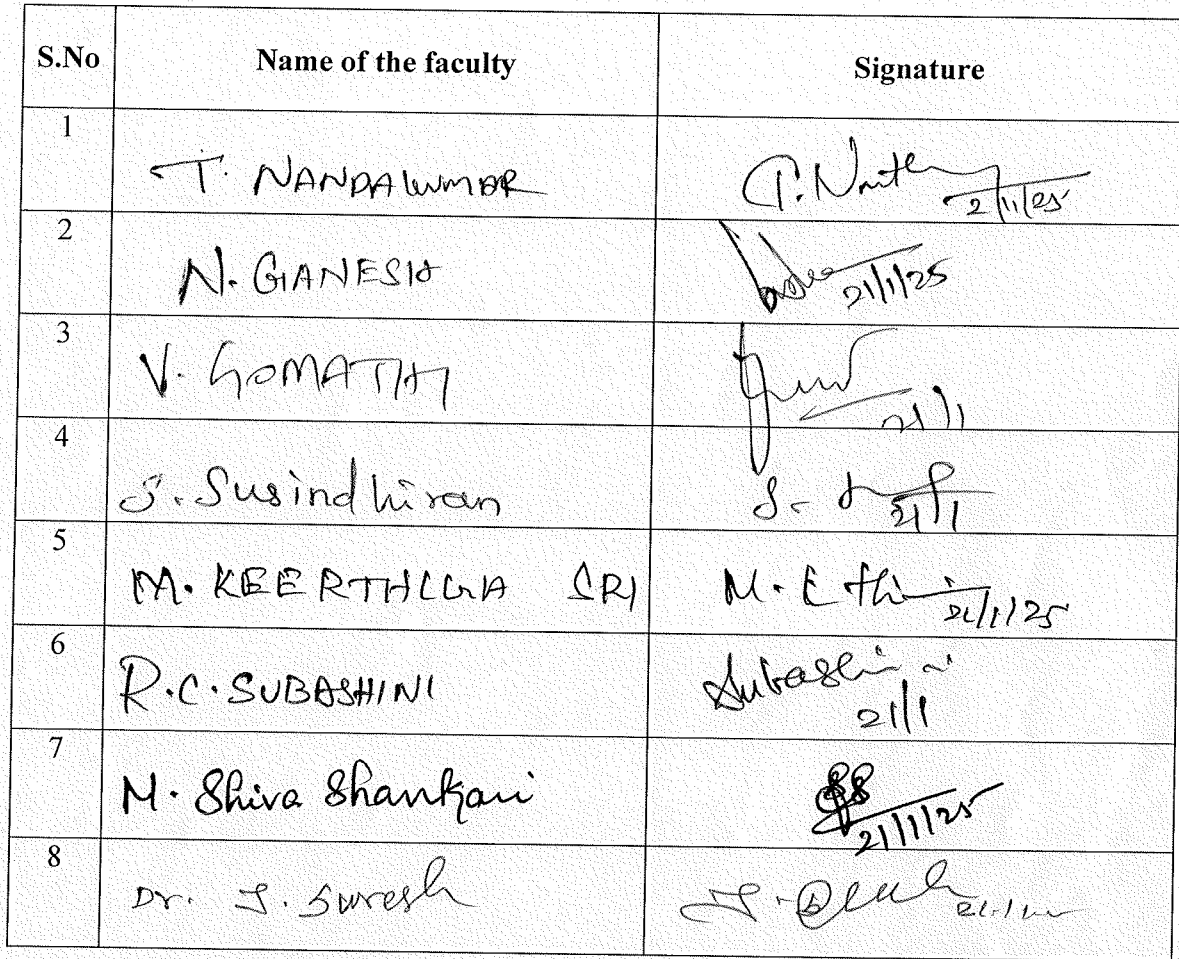 S.No Name of the faculty Signature
1
T. NANDAKUMAR T. N 21/1/25
2
N. GANESH 21/1/25
3
V. GOMATHI 21/1
4
S. Susindhiran S. 21/1
5
M. KEERTHIGA SRI M. 21/1/25
6
R.C. SUBASHINI Subashini
21/1
7
M. Shiva Shankari SS
21/1/25
8
Dr. J. Suresh J.